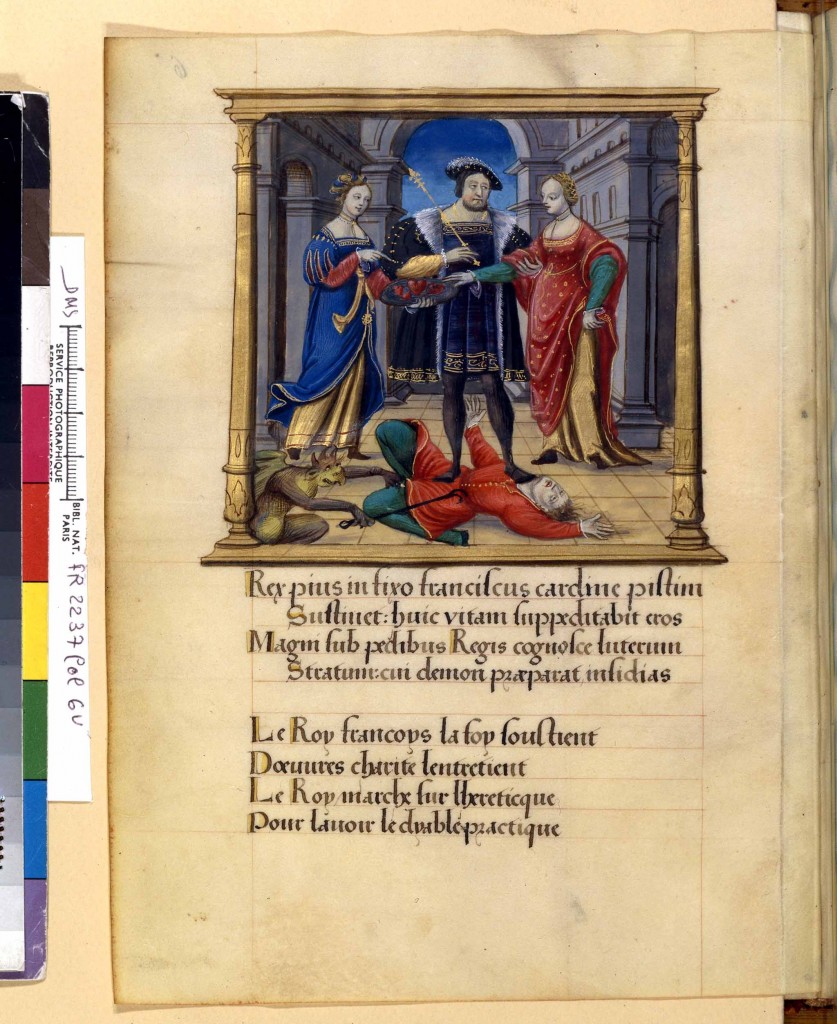 Rex pius in fixo franciscus cardine pistim
Sustinet: huic vitam suppeditabit eros
Magni sub pedibus Regis cognosce luterum
Stratum: cui demon præparat insidias
Le Roy francoys la foy soustient
Dœuures charite lentretient
Le Roy marche sur lhereticque
Pour lauoir le dyable practique
DMS
SERVICE PHOTOGRAPHIQUE
BIBL. NAT. PARIS
FR 2237 fol 6v
6